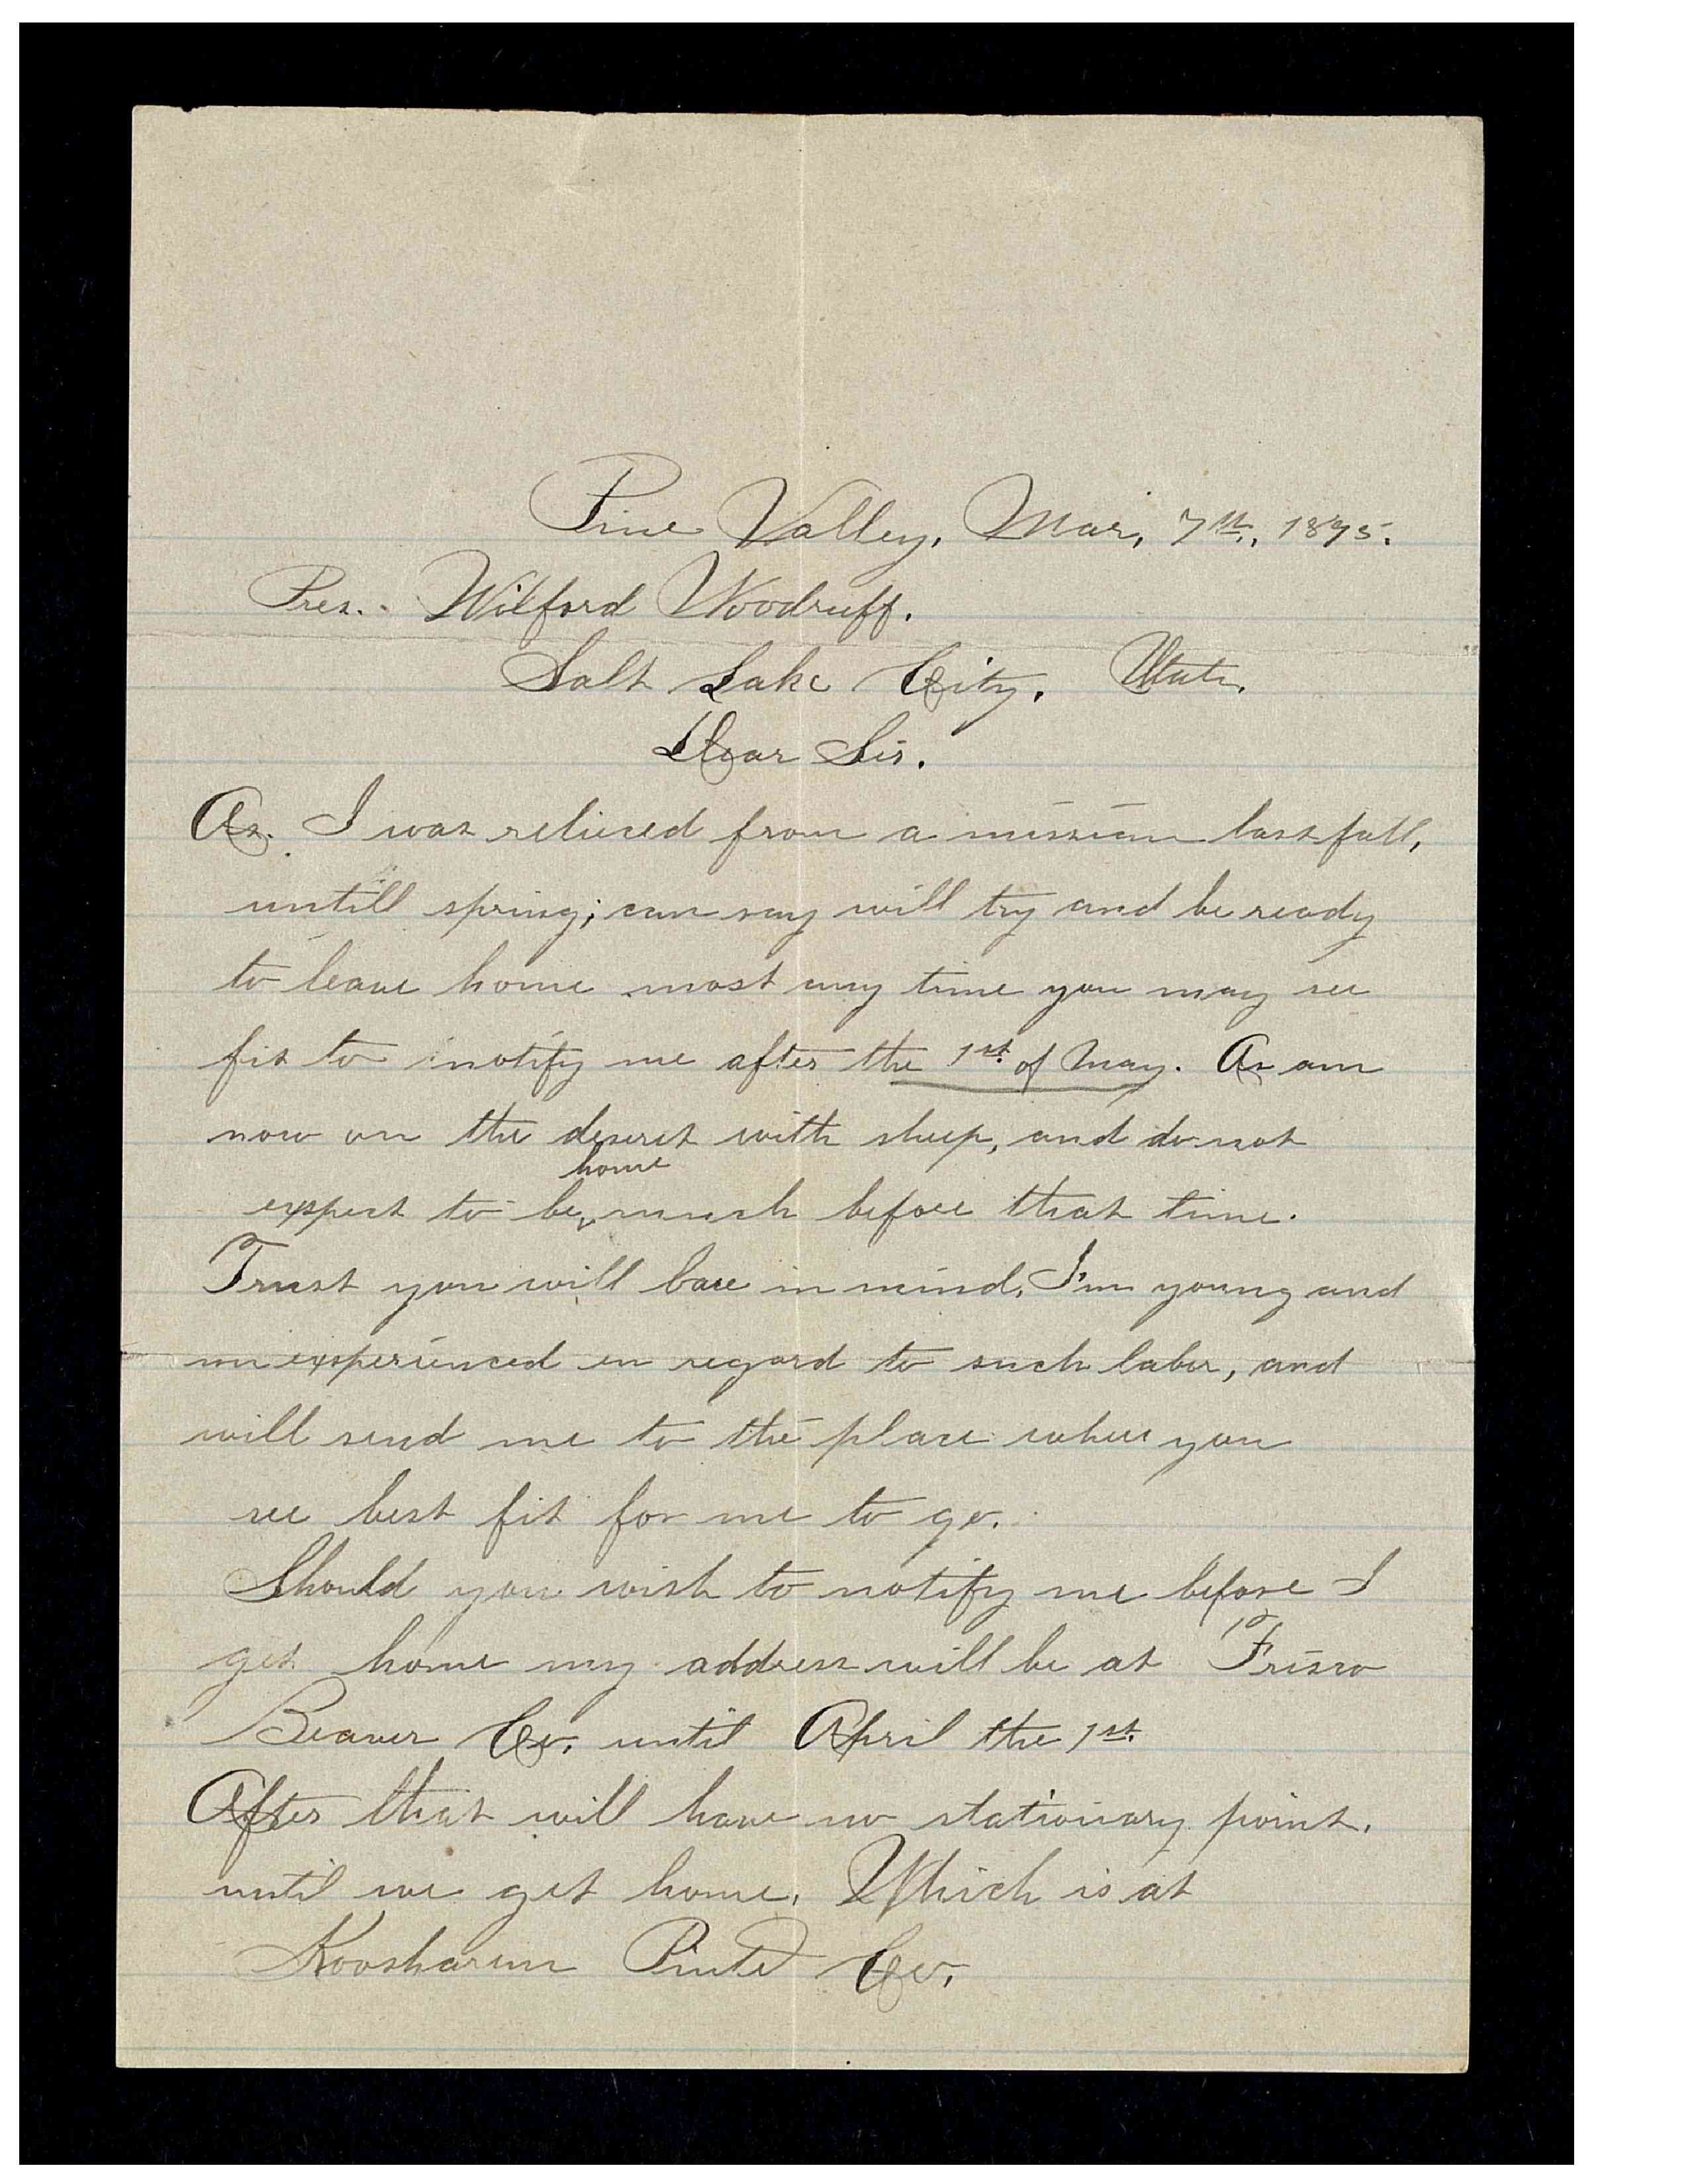 Pine Valley, Mar, 7th., 1895.
Pres. Wilford Woodruff.
Salt Lake City, Utah.
Dear Sir.
As. I was relieved from a mission last fall,
untill spring; can say will try and be ready
to leave home most any time you may see
fit to notify me after the 1st. of May. As am
now on the deseret with sheep, and do not
home
expect to be much before that time.
Trust you will bare in mind, I'm young and
unexperienced in regard to such labor, and
will send me to the place where you
see best fit for me to go.
Should you wish to notify me before I
get home my address will be at Frisco
Beaver Co. until April the 1st.
After that will have no stationary point,
until we get home. Which is at
Koosharem Piute Co.